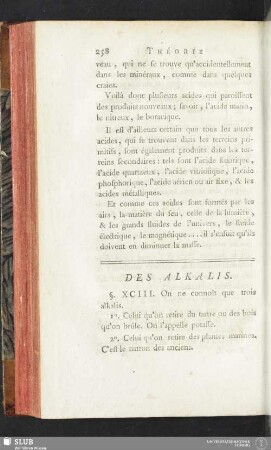 258 THÉORIE
veau, qui ne se trouve qu'accidentellement
dans les minéraux, comme dans quelques
craies.
Voilà donc plusieurs acides qui paroissent
des produits nouveaux; savoir, l'acide marin,
le nitreux, le boracique.
Il est d'ailleurs certain que tous les autres
acides, qui se trouvent dans les terreins pri-
mitifs, sont également produits dans les ter-
reins secondaires: tels sont l'acide fluorique,
l'acide quartzeux, l'acide vitriolique, l'acide
phosphorique, l'acide aérien ou air fixe, & les
acides métalliques.
Et comme ces acides sont formés par les
airs, la matière du feu, celle de la lumière,
& les grands fluides de l'univers, le fluide
électrique, le magnétique... il s'ensuit qu'ils
doivent en diminuer la masse.
DES ALKALIS.
§. XCIII. On ne connoît que trois
alkalis.
1°. Celui qu'on retire du tartre ou des bois
qu'on brûle. On l'appelle potasse.
2°. Celui qu'on retire des plantes marines.
C'est le natron des anciens.
SLUB